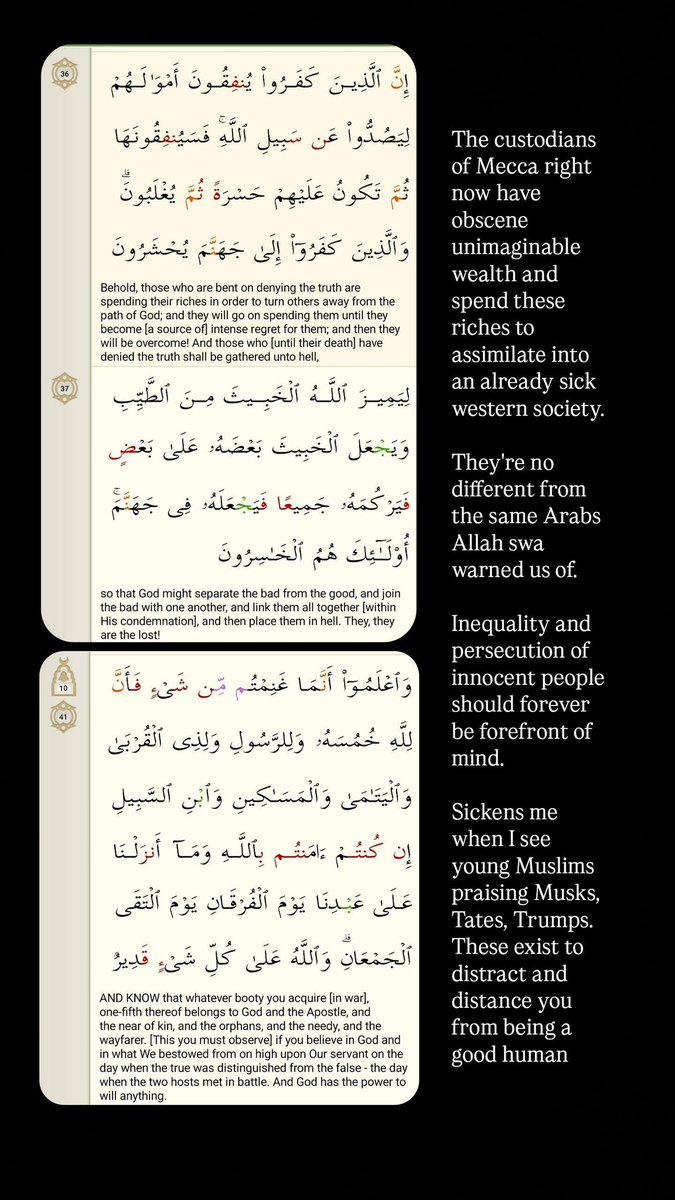 36
إِنَّ ٱلَّذِينَ كَفَرُوا۟ يُنفِقُونَ أَمْوَٰلَهُمْ
لِيَصُدُّوا۟ عَن سَبِيلِ ٱللَّهِ ۚ فَسَيُنفِقُونَهَا
ثُمَّ تَكُونُ عَلَيْهِمْ حَسْرَةً ثُمَّ يُغْلَبُونَ ۗ
وَٱلَّذِينَ كَفَرُوٓا۟ إِلَىٰ جَهَنَّمَ يُحْشَرُونَ
Behold, those who are bent on denying the truth are
spending their riches in order to turn others away from the
path of God; and they will go on spending them until they
become [a source of] intense regret for them; and then they
will be overcome! And those who [until their death] have
denied the truth shall be gathered unto hell,
37
لِيَمِيزَ ٱللَّهُ ٱلْخَبِيثَ مِنَ ٱلطَّيِّبِ
وَيَجْعَلَ ٱلْخَبِيثَ بَعْضَهُۥ عَلَىٰ بَعْضٍ
فَيَرْكُمَهُۥ جَمِيعًا فَيَجْعَلَهُۥ فِى جَهَنَّمَ ۚ
أُو۟لَٰٓئِكَ هُمُ ٱلْخَٰسِرُونَ
so that God might separate the bad from the good, and join
the bad with one another, and link them all together [within
His condemnation], and then place them in hell. They, they
are the lost!
10
41
وَٱعْلَمُوٓا۟ أَنَّمَا غَنِمْتُم مِّن شَىْءٍ فَأَنَّ
لِلَّهِ خُمُسَهُۥ وَلِلرَّسُولِ وَلِذِى ٱلْقُرْبَىٰ
وَٱلْيَتَٰمَىٰ وَٱلْمَسَٰكِينِ وَٱبْنِ ٱلسَّبِيلِ
إِن كُنتُمْ ءَامَنتُم بِٱللَّهِ وَمَآ أَنزَلْنَا
عَلَىٰ عَبْدِنَا يَوْمَ ٱلْفُرْقَانِ يَوْمَ ٱلْتَقَى
ٱلْجَمْعَانِ ۗ وَٱللَّهُ عَلَىٰ كُلِّ شَىْءٍ قَدِيرٌ
AND KNOW that whatever booty you acquire [in war],
one-fifth thereof belongs to God and the Apostle, and
the near of kin, and the orphans, and the needy, and the
wayfarer. [This you must observe] if you believe in God and
in what We bestowed from on high upon Our servant on the
day when the true was distinguished from the false - the day
when the two hosts met in battle. And God has the power to
will anything.
The custodians
of Mecca right
now have
obscene
unimaginable
wealth and
spend these
riches to
assimilate into
an already sick
western society.
They're no
different from
the same Arabs
Allah swa
warned us of.
Inequality and
persecution of
innocent people
should forever
be forefront of
mind.
Sickens me
when I see
young Muslims
praising Musks,
Tates, Trumps.
These exist to
distract and
distance you
from being a
good human